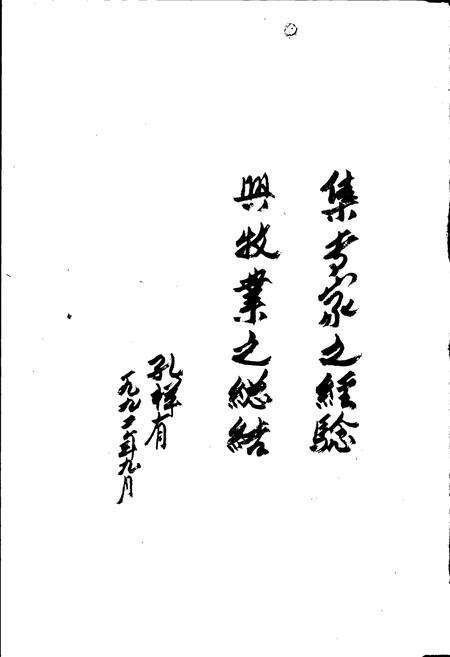 集专家之經驗
興牧業之總結
孔祥有
一九九二年九月